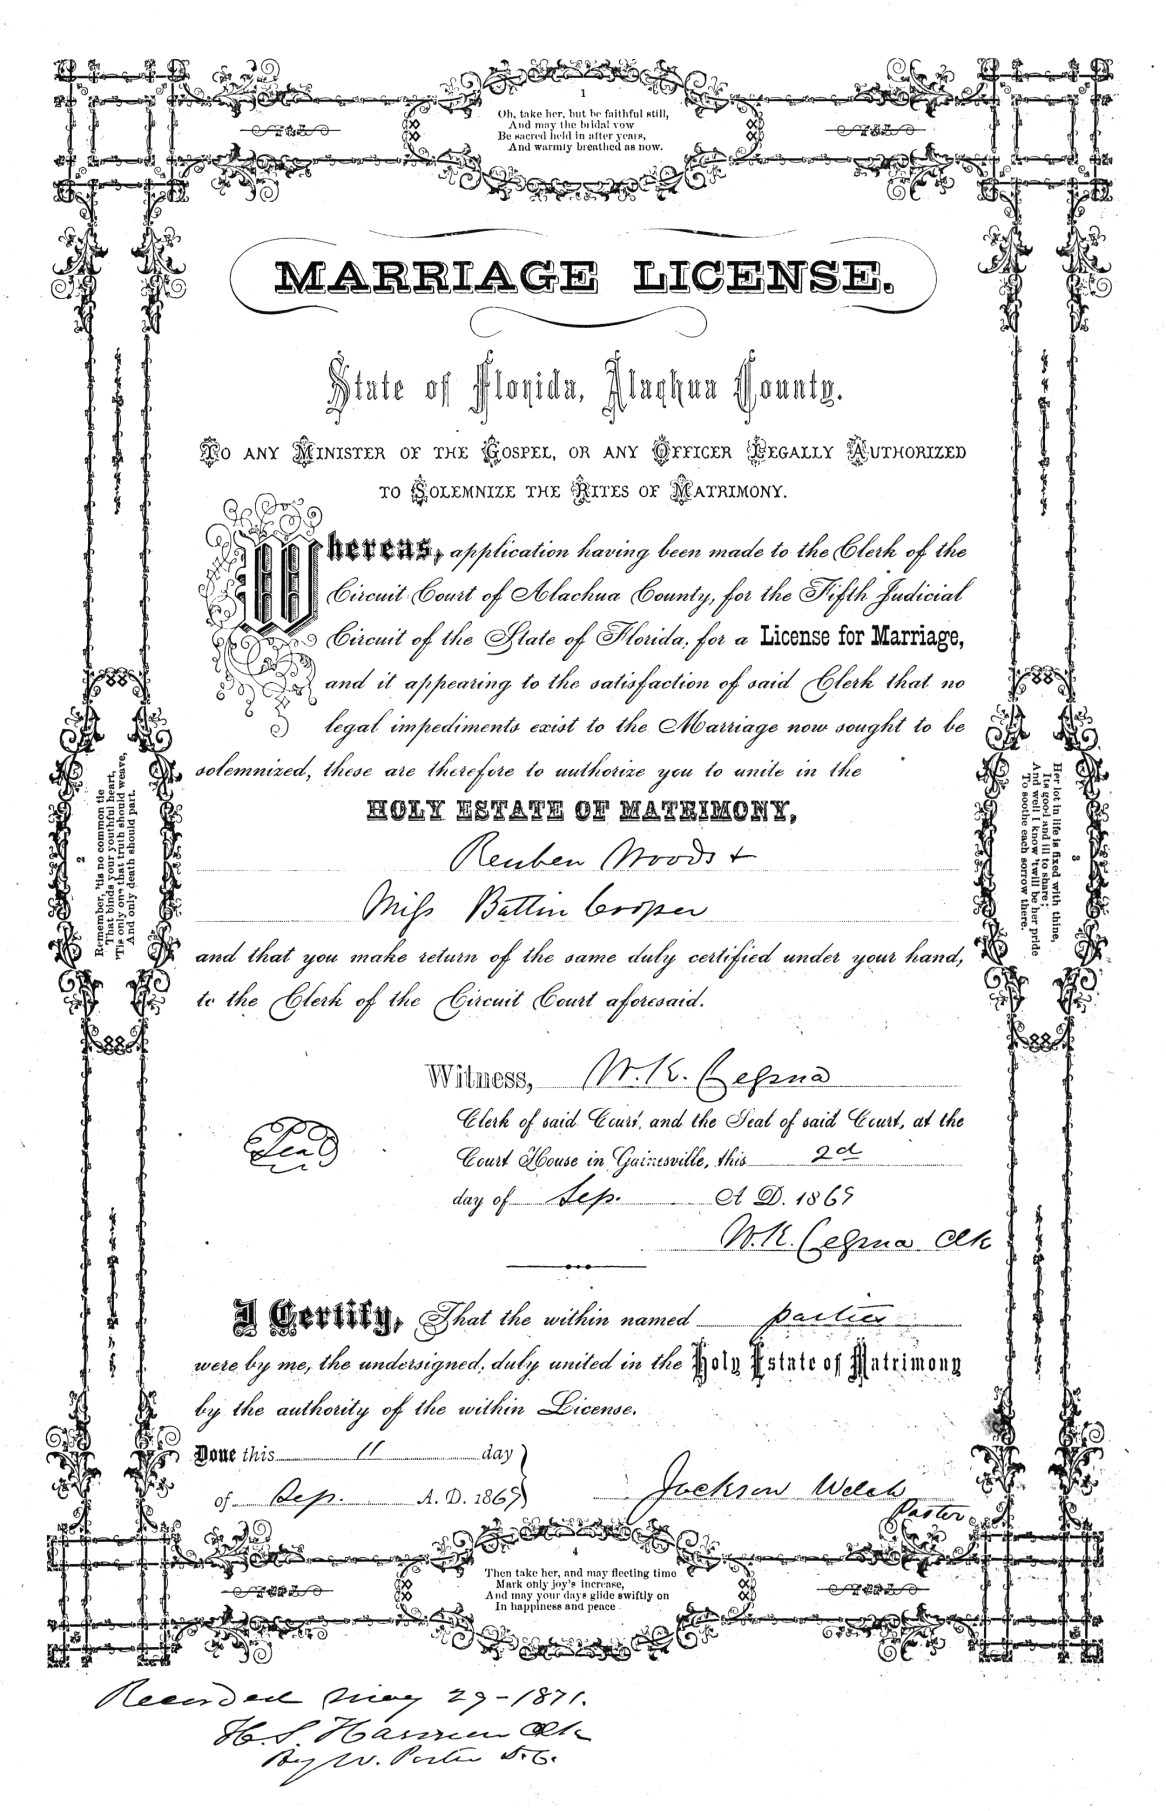 1
Oh, take her, but be faithful still,
And may the bridal vow
Be sacred held in after years,
And warmly breathed as now.
MARRIAGE LICENSE.
State of Florida, Alachua County.
TO ANY MINISTER OF THE GOSPEL, OR ANY OFFICER LEGALLY AUTHORIZED
TO SOLEMNIZE THE RITES OF MATRIMONY.
Whereas, application having been made to the Clerk of the
Circuit Court of Alachua County, for the Fifth Judicial
Circuit of the State of Florida, for a License for Marriage,
and it appearing to the satisfaction of said Clerk that no
legal impediments exist to the Marriage now sought to be
solemnized, these are therefore to authorize you to unite in the
HOLY ESTATE OF MATRIMONY,
Reuben Woods +
Miss Battin Cooper
and that you make return of the same duly certified under your hand,
to the Clerk of the Circuit Court aforesaid.
2
Remember, 'tis no common tie
That binds your youthful heart,
'Tis only one that truth should weave,
And only death should part.
3
Her lot in life is fixed with thine,
Its good and ill to share;
And well I know 'twill be her pride
To soothe each sorrow there.
Witness, W. K. Cessna
Clerk of said Court, and the Seal of said Court, at the
Seal
Court House in Gainesville, this 2d
day of Sep. A D. 1869
W. K. Cessna Clk
I Certify, That the within named parties
were by me, the undersigned, duly united in the Holy Estate of Matrimony
by the authority of the within License.
Done this 11 day
of Sep. A. D. 1869
Jackson Welch
Paster
4
Then take her, and may fleeting time
Mark only joy's increase,
And may your days glide swiftly on
In happiness and peace
Recorded May 29-1871.
H. S. Harmon Clk
By W. Porter D.C.